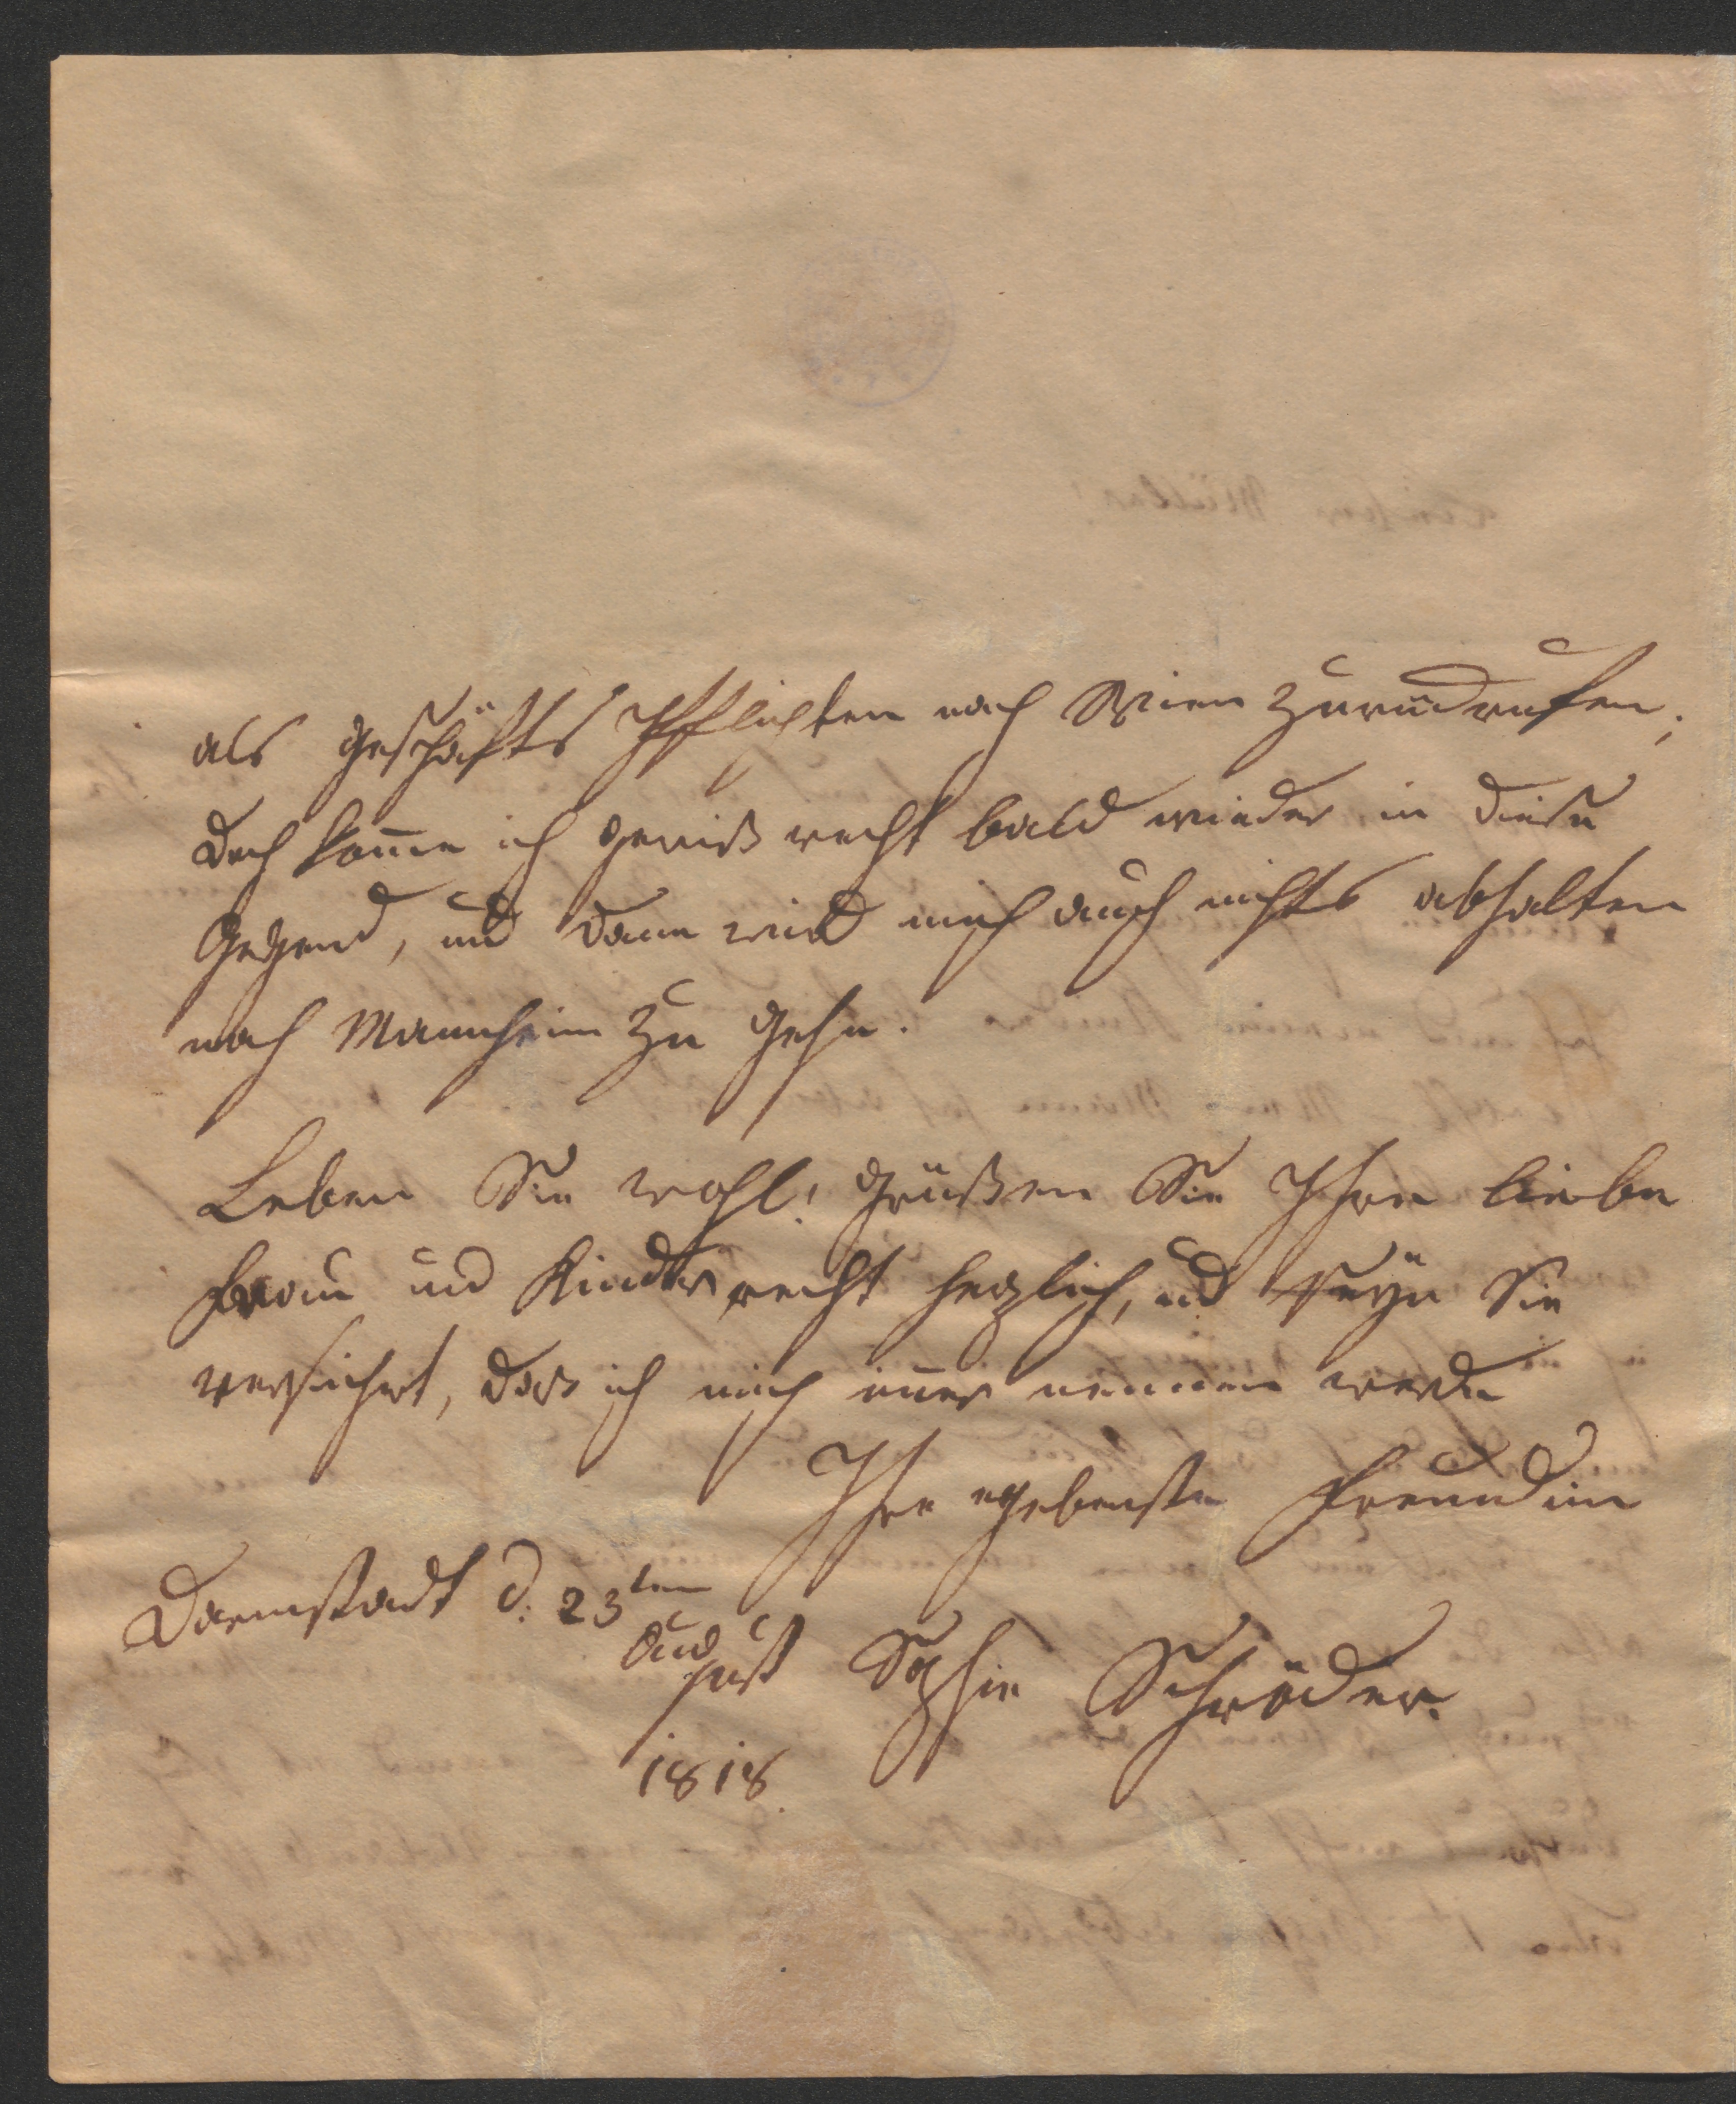 als geschäfts Pflichten nach Wien zurückrufen;
doch kom̄e ich gewiß recht bald wieder in diese
Gegend, und dann wird mich auch nichts abhalten
nach Mannheim zu gehn.
Leben Sie wohl! Grüßen Sie Ihre liebe
Frau und Kinder recht herzlich, und seyn Sie
versichert, daß ich mich im̄er nennen werde
Ihre ergebenste Freundinn
Darmstadt d: 23ten
August Sophie Schröder.
1818.